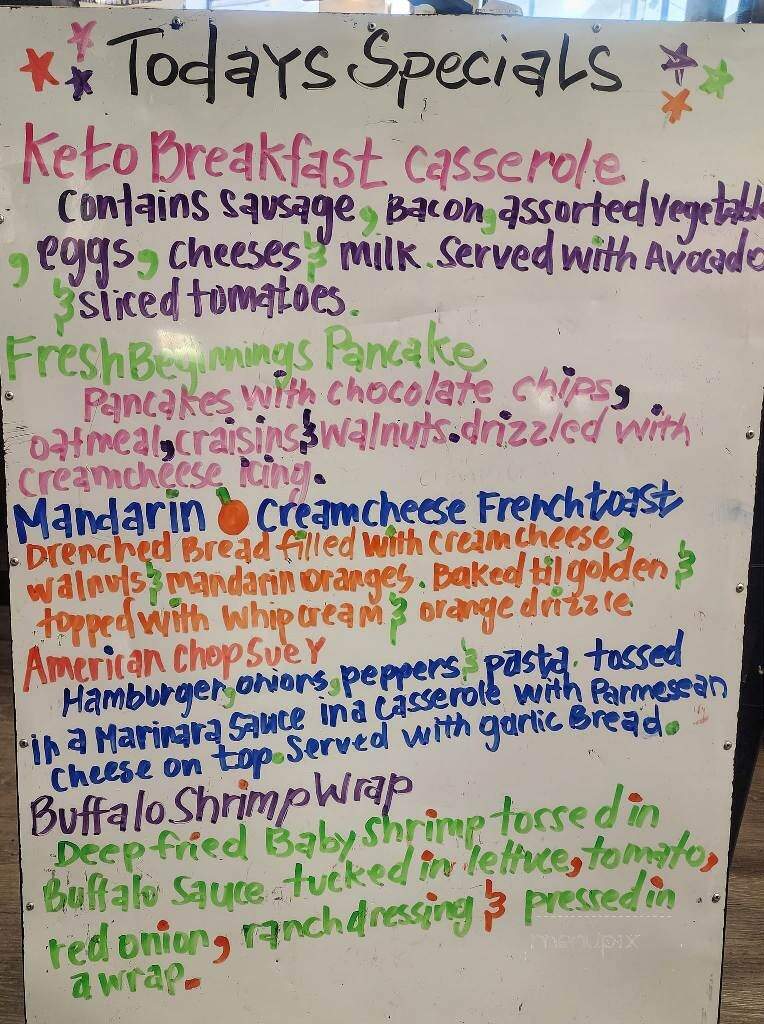 Todays Specials
Keto Breakfast casserole
Contains sausage, Bacon, assorted Vegetable
, eggs, cheeses & milk. Served with Avocado
& sliced tomatoes.
Fresh Beginnings Pancake
Pancakes with chocolate chips,
oatmeal, craisins & walnuts. drizzled with
creamcheese icing.
Mandarin Creamcheese Frenchtoast
Drenched Bread filled with creamcheese,
walnuts & mandarin oranges. Baked til golden &
topped with whipcream & orange drizzle
American Chop Suey
Hamburger, onions, peppers & pasta. tossed
in a Marinara Sauce in a casserole with Parmesean
cheese on top. Served with garlic Bread.
Buffalo Shrimp Wrap
Deep fried Baby shrimp tossed in
Buffalo Sauce tucked in lettuce, tomato,
red onion, ranch dressing & pressed in
a wrap.